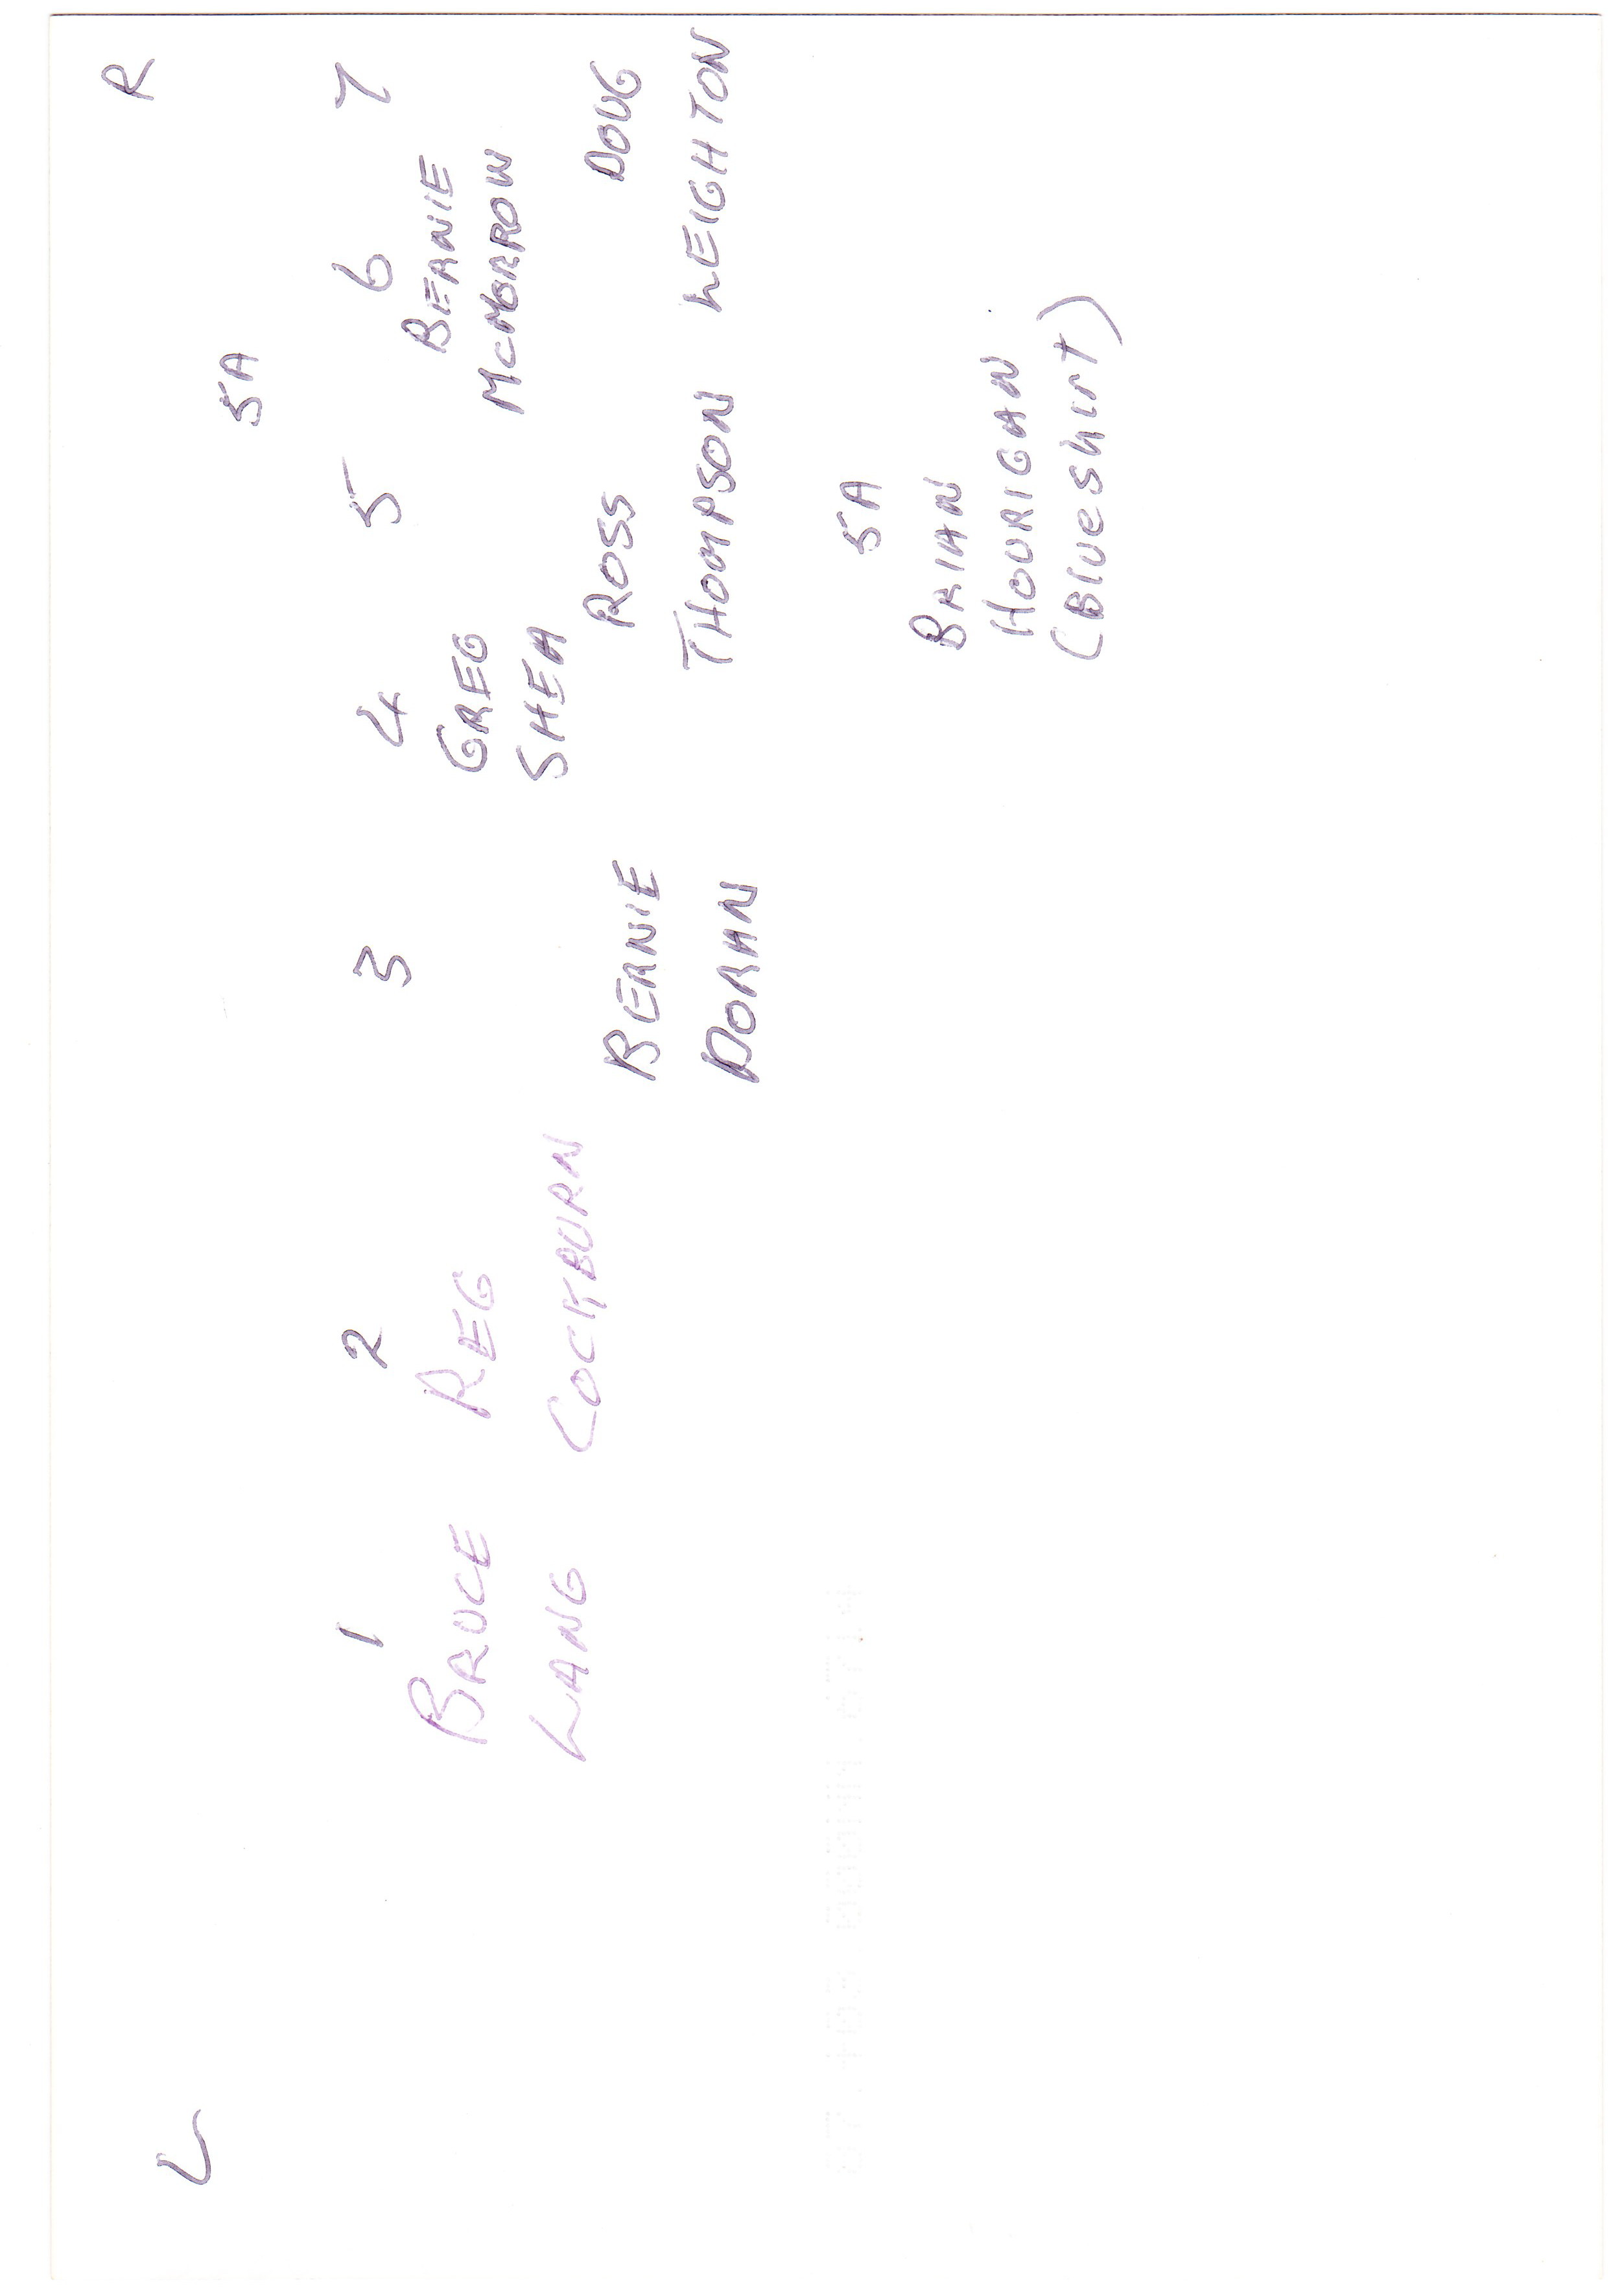 L R
5A
1 2 3 4 5 6 7
BRUCE REG GREG BERNIE
LANG COCKBURN SHEA McMORROW
BERNIE ROSS DOUG
DORAN THOMPSON LEIGHTON
5A
BRIAN
HOURIGAN
(Blue Shirt)